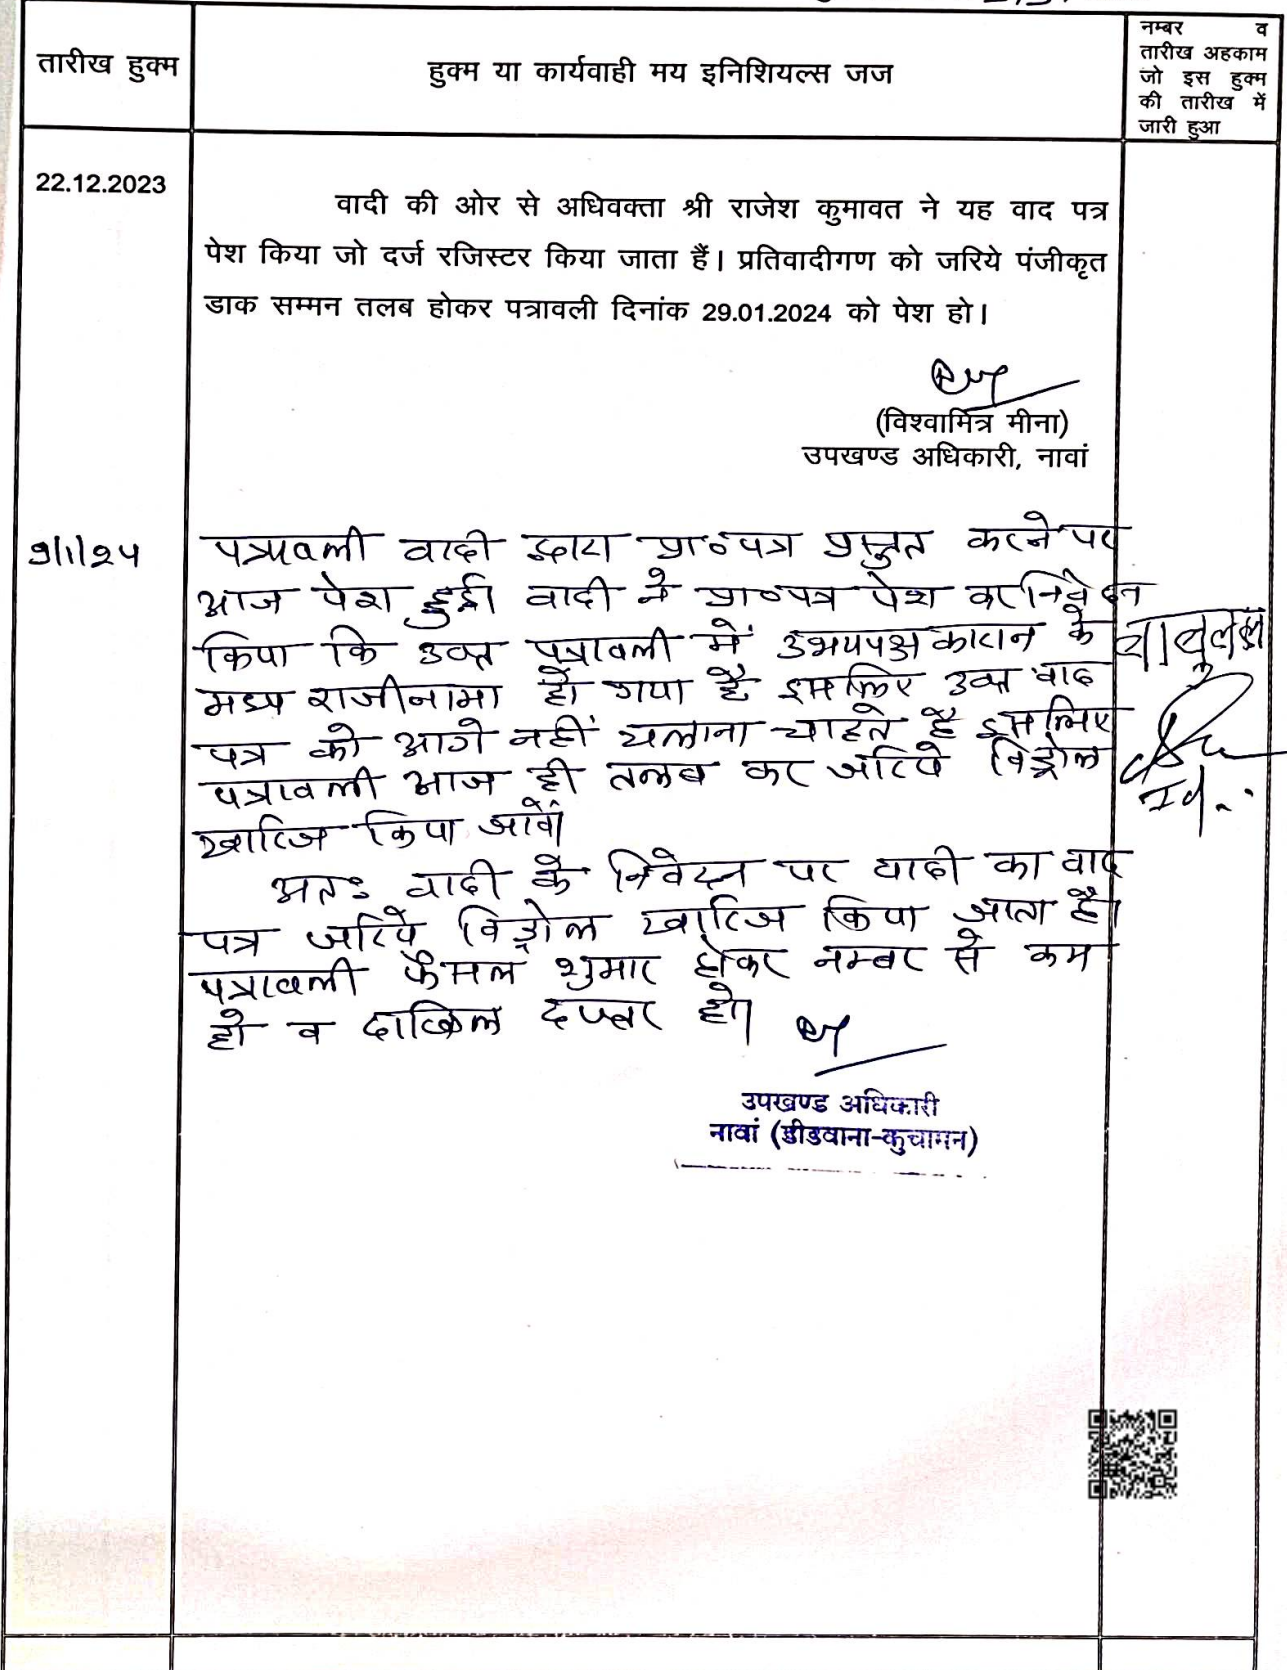 तारीख हुक्म
हुक्म या कार्यवाही मय इनिशियल्स जज
नम्बर व
तारीख अहकाम
जो इस हुक्म
की तारीख में
जारी हुआ
22.12.2023
वादी की ओर से अधिवक्ता श्री राजेश कुमावत ने यह वाद पत्र
पेश किया जो दर्ज रजिस्टर किया जाता हैं। प्रतिवादीगण को जरिये पंजीकृत
डाक सम्मन तलब होकर पत्रावली दिनांक 29.01.2024 को पेश हो।
(विश्वामित्र मीना)
उपखण्ड अधिकारी, नावां
9/1/24
पत्रावली वादी द्वारा प्रा०पत्र प्रस्तुत करने पर
आज पेश हुई। वादी ने प्रा०पत्र पेश कर निवेदन
किया कि उक्त पत्रावली में उभयपक्षकारान के
मध्य राजीनामा हो गया है इसलिए उक्त वाद
पत्र को आगे नहीं चलाना चाहते है इसलिए
पत्रावली आज ही तलब कर जरिये विड्रोल
खारिज किया जावें।
अतः वादी के निवेदन पर वादी का वाद
पत्र जरिये विड्रोल खारिज किया जाता है।
पत्रावली फैसल शुमार होकर नम्बर से कम
हो व दाखिल दफ्तर हो।
उपखण्ड अधिकारी
नावां (डीडवाना-कुचामन)